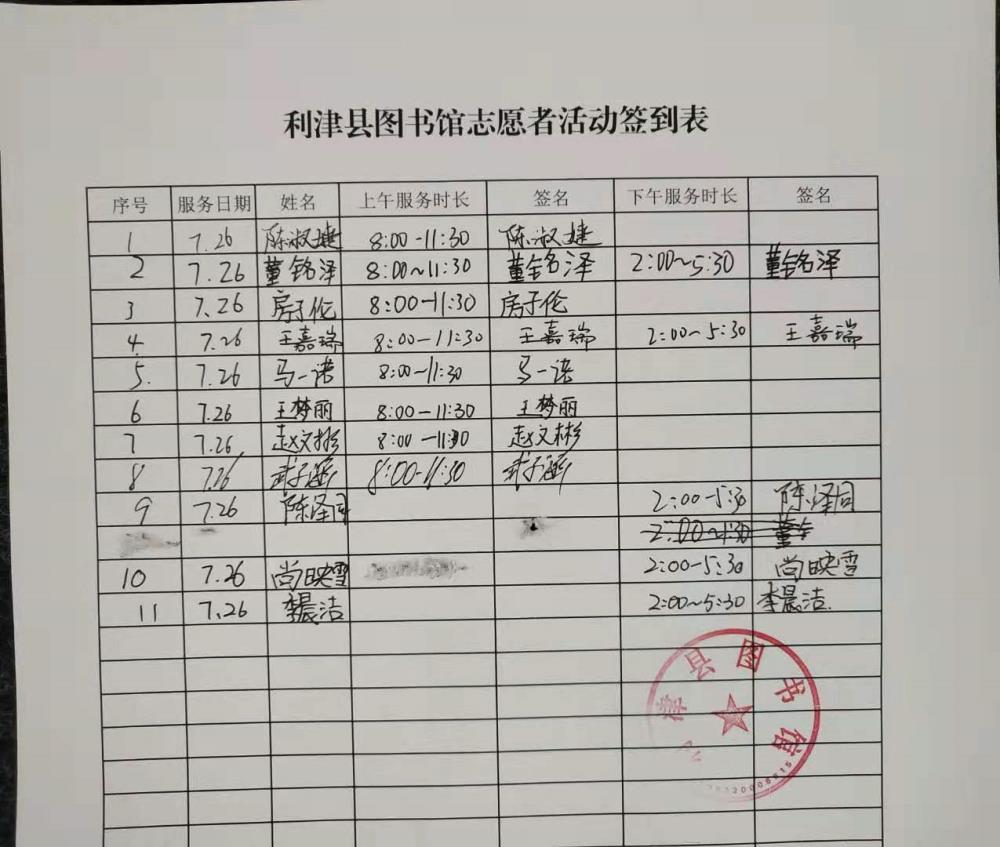 利津县图书馆志愿者活动签到表
序号 服务日期 姓名 上午服务时长 签名 下午服务时长 签名
1 7.26 陈淑婕 8:00-11:30 陈淑婕
2 7.26 董铭泽 8:00~11:30 董铭泽 2:00~5:30 董铭泽
3 7.26 房子伦 8:00-11:30 房子伦
4. 7.26 王嘉瑞 8:00-11:30 王嘉瑞 2:00-5:30 王嘉瑞
5. 7.26 马一诺 8:00-11:30 马一诺
6 7.26 王梦丽 8:00-11:30 王梦丽
7 7.26 赵文彬 8:00-11:30 赵文彬
8 7.26 武子涵 8:00-11:30 武子涵
9 7.26 陈泽同 2:00-5:30 陈泽同
10 7.26 尚映雪 2:00-5:30 尚映雪
11 7.26 李晨洁 2:00~5:30 李晨洁
津县图书馆